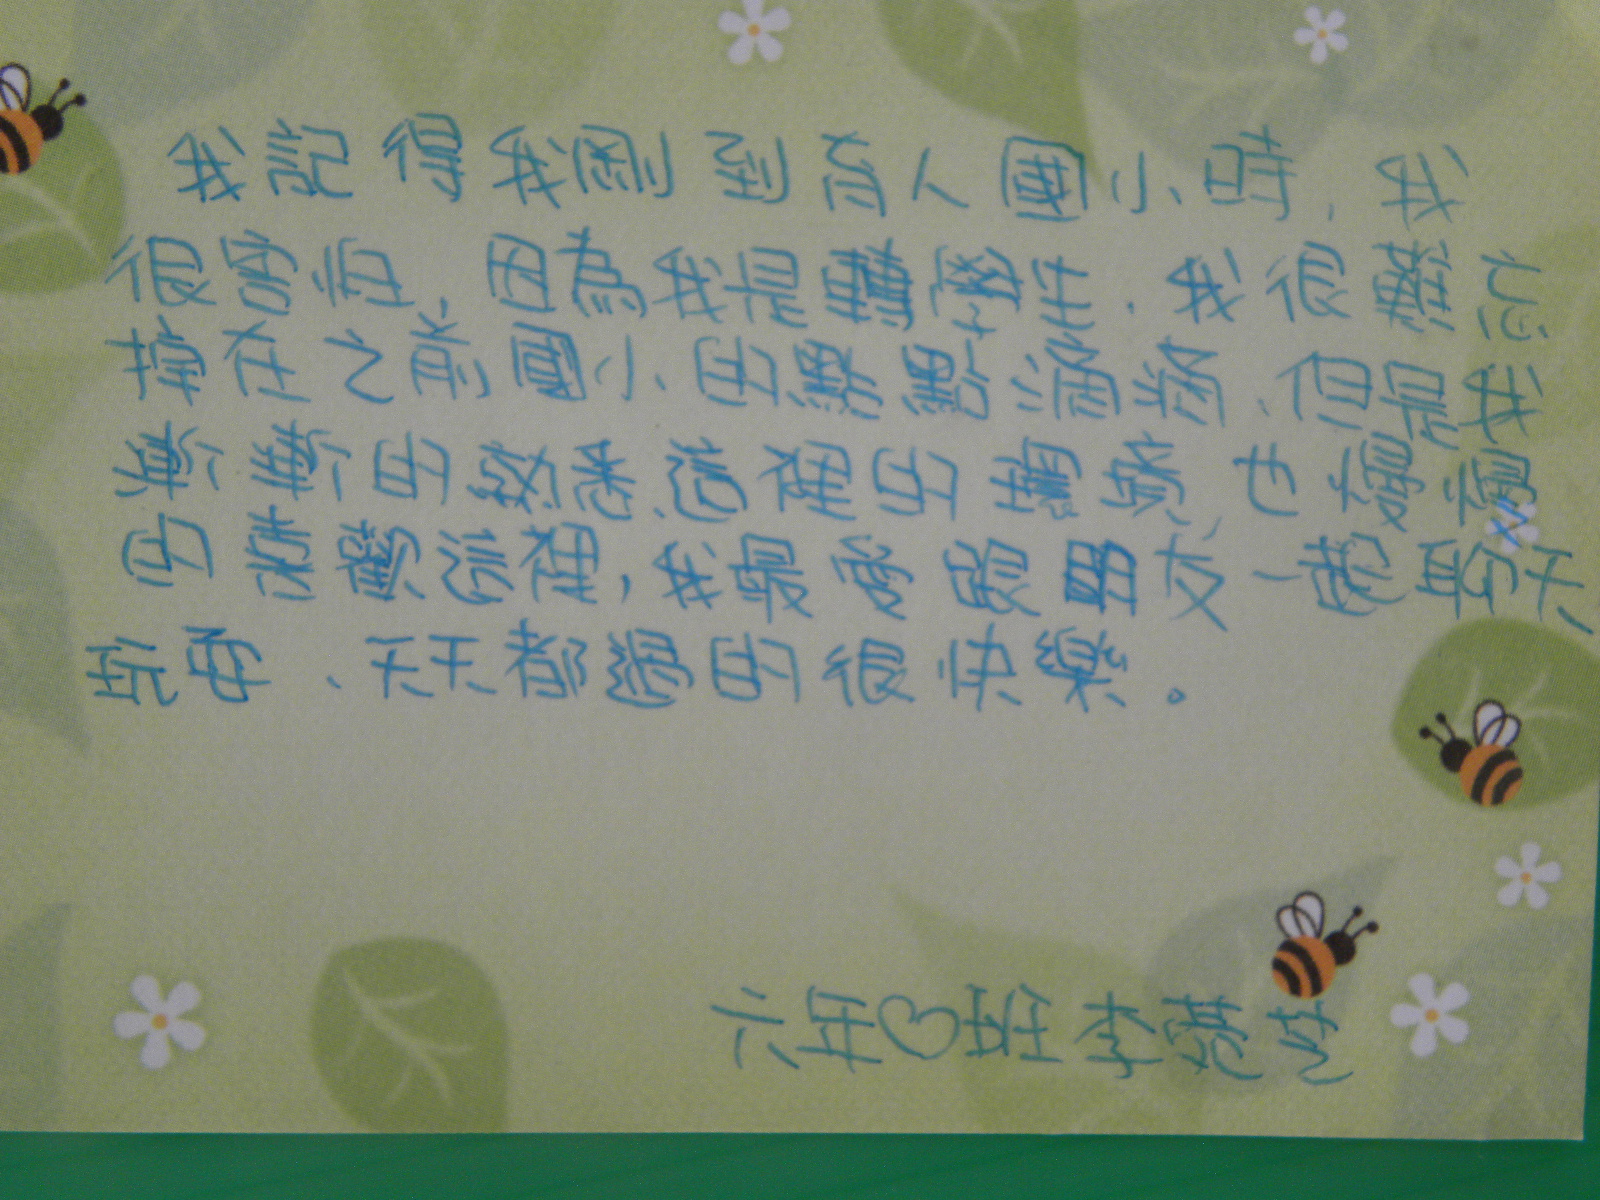 我記得我剛到育人國小時，我
很害怕，因為我是轉學生，我很難忘
掉在之前國小的點點滴滴，但是我
漸漸的熟悉這裡的環境，也慢慢
的喜歡這裡，我最愛跟朋友一起聊天
玩耍，天天都過的很快樂。
六年♡班 李